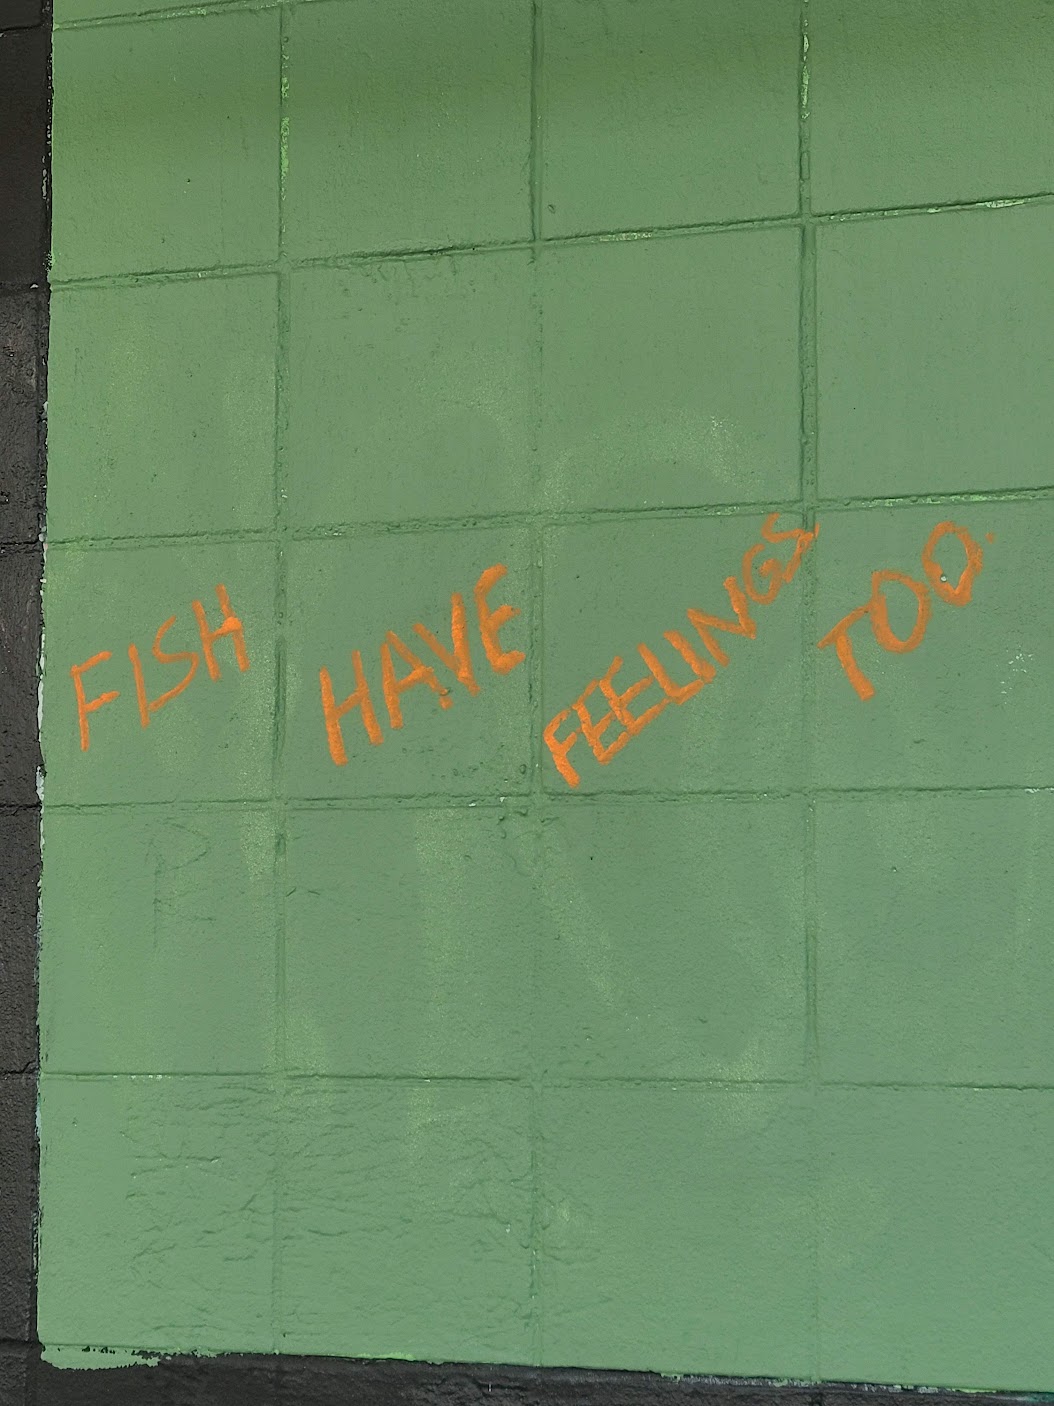 FISH HAVE FEELINGS TOO.